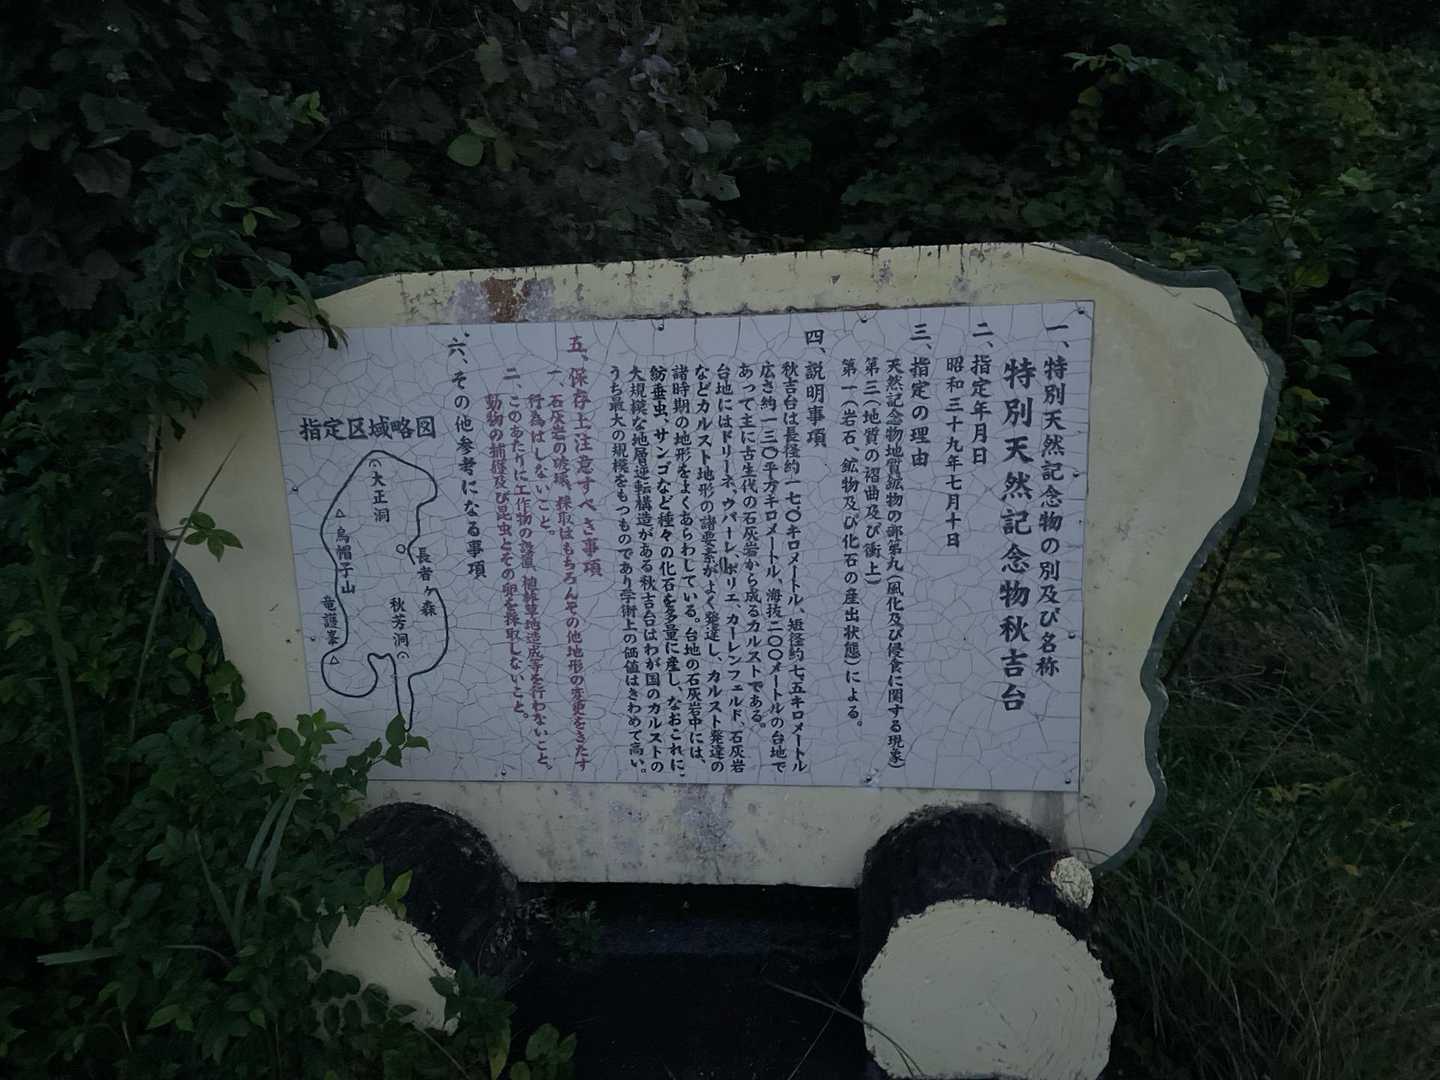 一、特別天然記念物の別及び名称
特別天然記念物秋吉台
二、指定年月日
昭和三十九年七月十日
三、指定の理由
天然記念物地質鉱物の部第九(風化及び侵食に関する現象)
第三(地質の褶曲及び衝上)
第一(岩石、鉱物及び化石の産出状態)による。
四、説明事項
秋吉台は長径約一七〇キロメートル、短径約七、五キロメートル
広さ約一三〇平方キロメートル、海抜二〇〇メートルの台地で
あって主に古生代の石灰岩から成るカルストである。
台地にはドリーネ、ウバーレ、ポリエ、カーレンフェルド、石灰岩
などカルスト地形の諸要素がよく発達し、カルスト発達の
諸時期の地形をよくあらわしている。台地の石灰岩中には、
紡垂虫、サンゴなど種々の化石を多量に産し、なおこれに、
大規模な地層逆転構造がある秋吉台はわが国のカルストの
うち最大の規模をもつものであり学術上の価値はきわめて高い。
五、保存上注意すべき事項
一、石灰岩の破壊、採取はもちろんその他地形の変更をきたす
行為はしないこと。
二、このあたりに工作物の設置、植林草地造成等を行わないこと。
動物の捕獲及び昆虫とその卵を採取しないこと。
六、その他参考になる事項
指定区域略図
大正洞
烏帽子山
長者ヶ森
秋芳洞
竜護峯